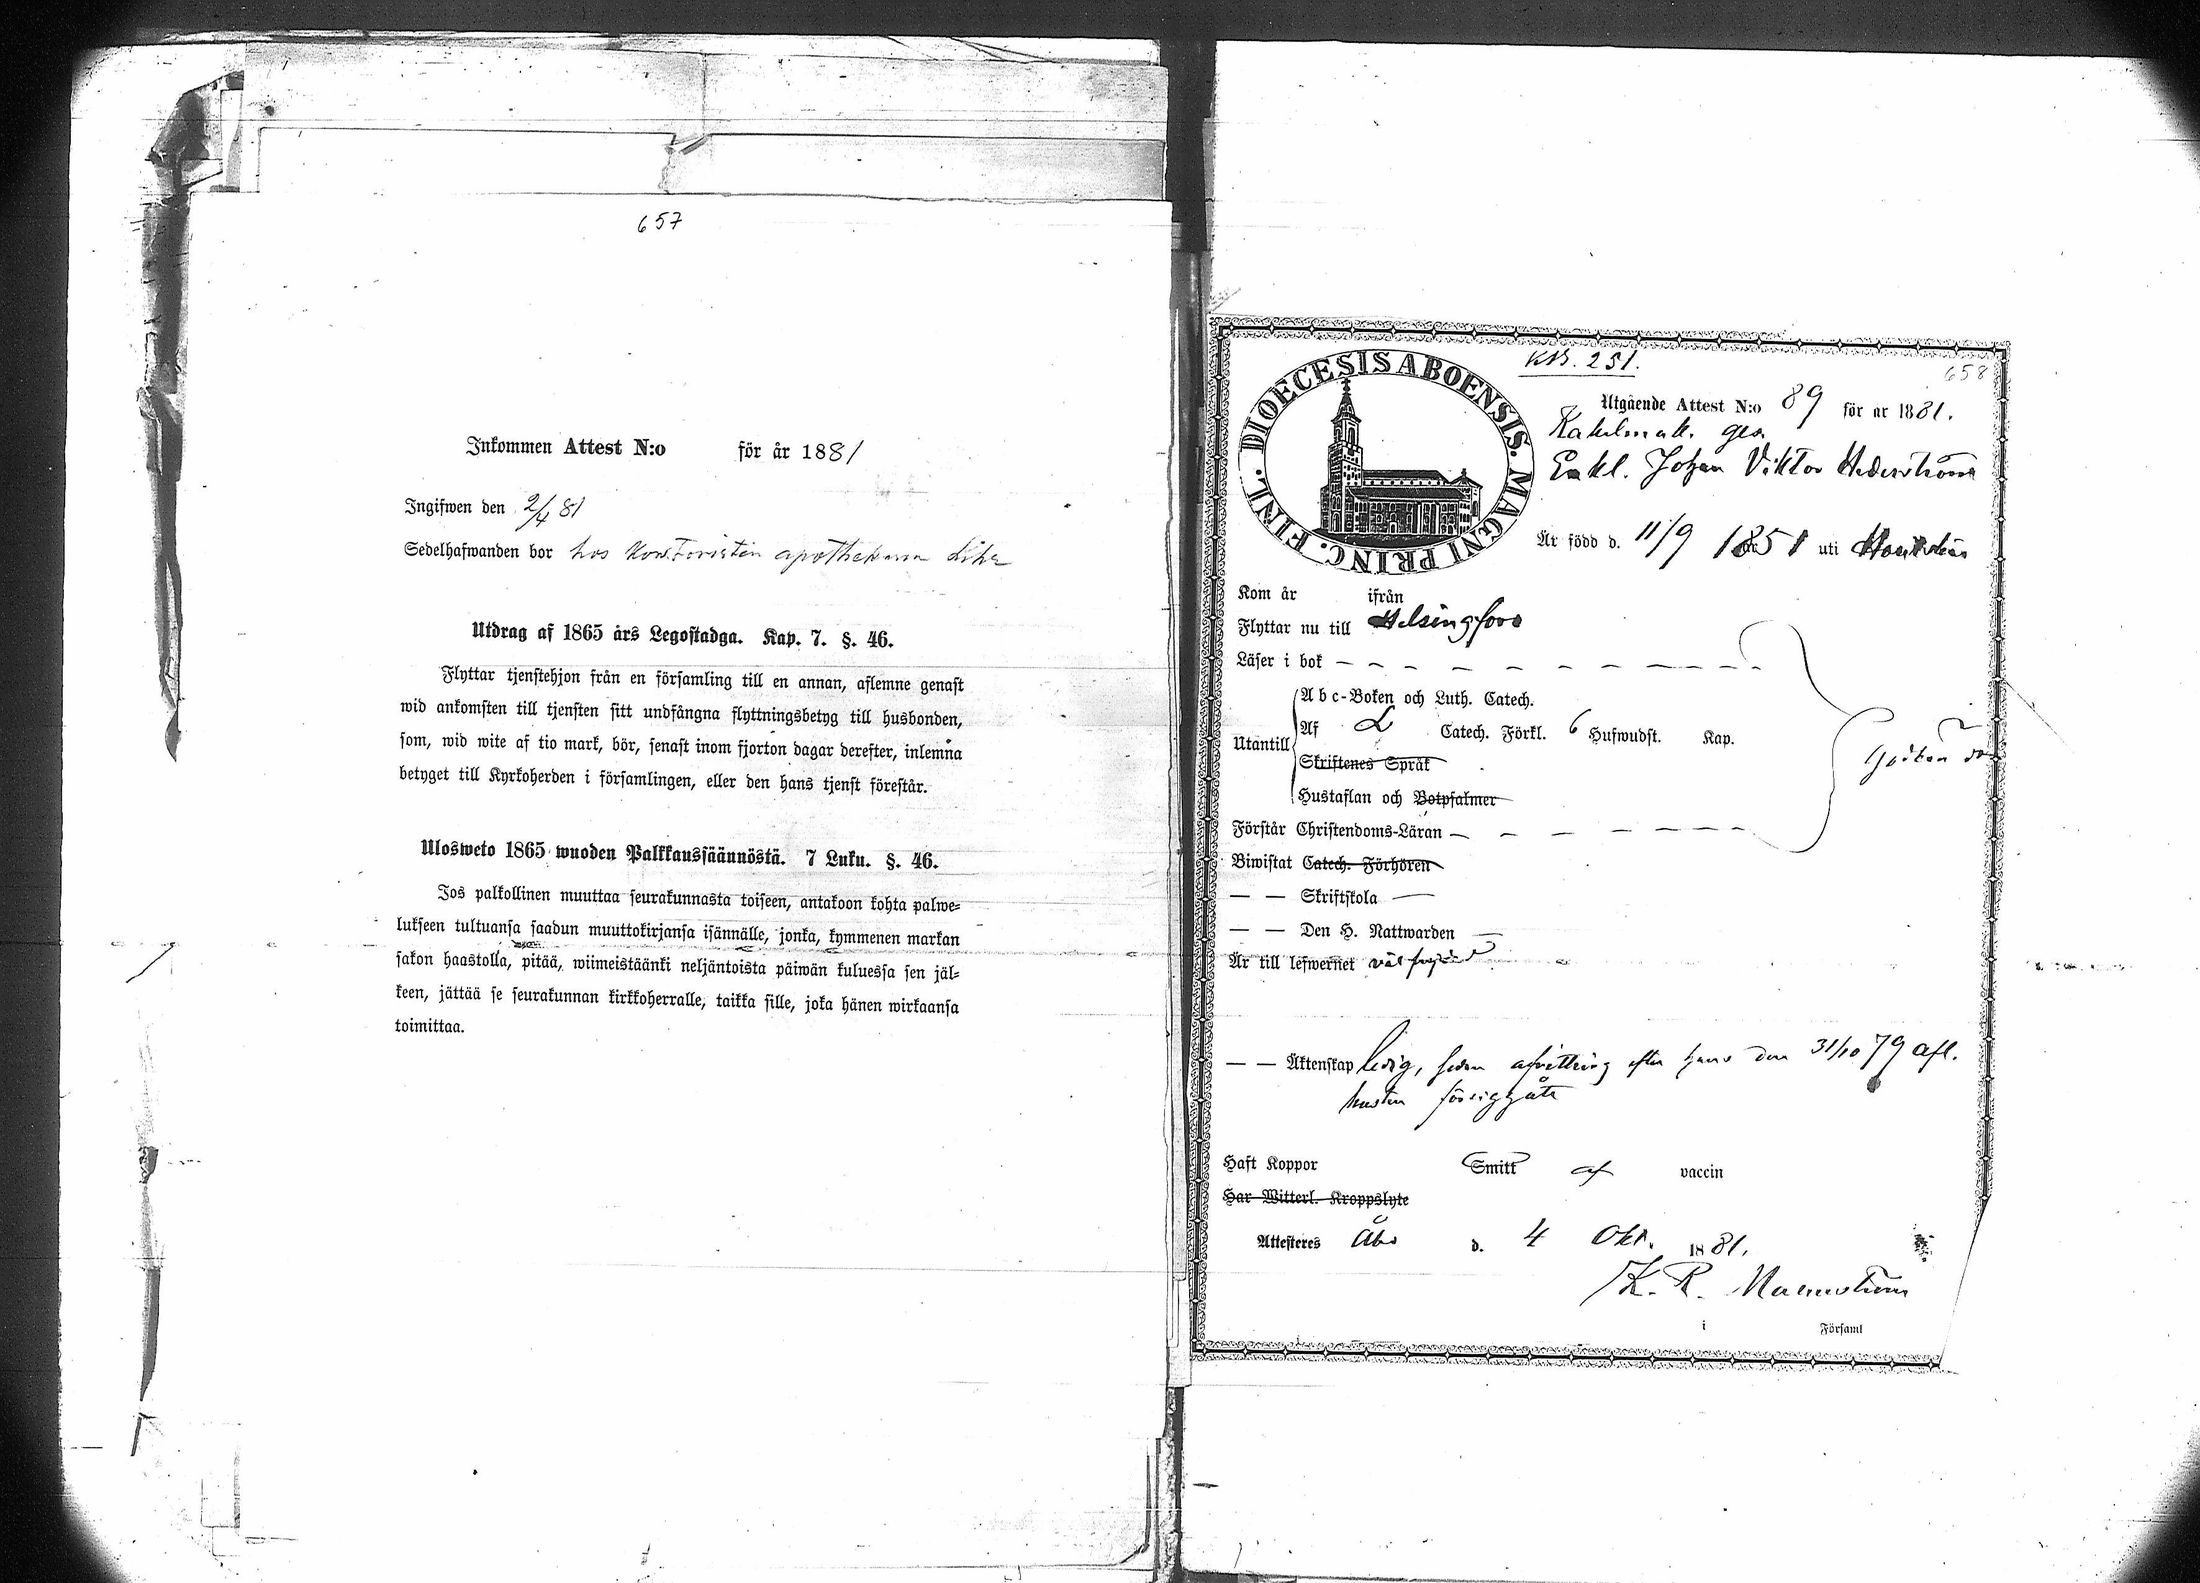 657
Inkommen Attest N:o för år 1881
Ingifwen den 2/4 81
Sedelhafwanden bor hos apothekaren
Utdrag af 1865 års Legostadga. Kap. 7. §. 46.
Flyttar tjenstehjon från en församling till en annan, aflemne genast
wid ankomsten till tjensten sitt undfångna flyttningsbetyg till husbonden,
som, wid wite af tio mark, bör, senast inom fjorton dagar derefter, inlemna
betyget till Kyrkoherden i församlingen, eller den hans tjenst förestår.
Ulosweto 1865 wuoden Palkkaussäännöstä. 7 Luku. §. 46.
Jos palkollinen muuttaa seurakunnasta toiseen, antakoon kohta palwe=
lukseen tultuansa saadun muuttokirjansa isännälle, jonka, kymmenen markan
sakon haastolla, pitää, wiimeistäänki neljäntoista päiwän kuluessa sen jäl=
keen, jättää se seurakunnan kirkkoherralle, taikka sille, joka hänen wirkaansa
toimittaa.
658
KB. 251.
DIOECESIS ABOENSIS. MAGNI PRINC. FINL.
Utgående Attest N:o 89 för ar 1881.
Kakelmak. ges.
Johan Viktor Hederström
Är född d. 11/9 1851 uti
Kom år ifrån
Flyttar nu till Helsingfors
Läser i bok — — — — — — — — — —
Abc-Boken och Luth. Catech.
Utantill Af L Catech. Förkl. 6 Hufwudst. Kap.
Skriftenes Språk
Hustaflan och Botpsalmer
Förstår Christendoms-Läran — — — — — — —
Godkändt
Biwistat Catech. Förhören
— — Skriftskola —
— — Den H. Nattwarden —
Är till lefwernet väl frejdad
— — Äktenskap ledig, sedan afvittring efter hans den 31/10 79 afl.
hustru försiggått
Haft Koppor Smitt af vaccin
Har Witterl. Kroppslyte
Attesteres Åbo d. 4 Okt. 1881.
K. R. Malmström
i Församl